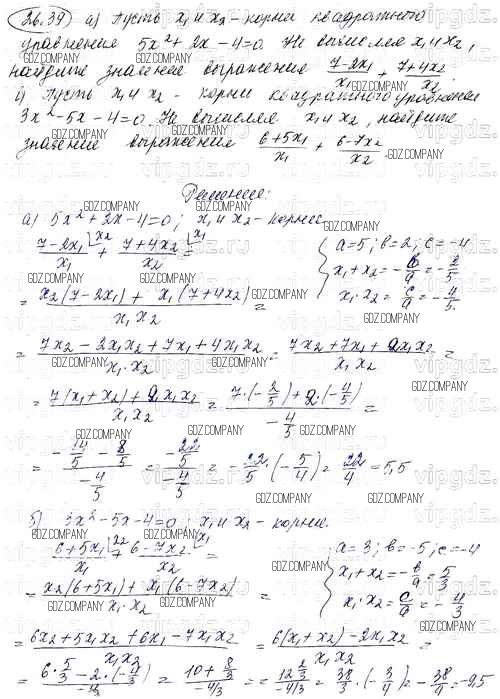 26.39) а) Пусть x₁ и x₂ - корни квадратного
уравнения 5x² + 2x - 4 = 0. Не вычисляя x₁ и x₂,
найдите значение выражения (7-2x₁)/x₁ + (7+4x₂)/x₂
Пусть x₁ и x₂ - корни квадратного уравнения
3x² - 5x - 4 = 0. Не вычисляя x₁ и x₂, найдите
значение выражения (6+5x₁)/x₁ + (6-7x₂)/x₂.
Решение:
а) 5x² + 2x - 4 = 0; x₁ и x₂ - корни.
(7-2x₁)/x₁ + (7+4x₂)/x₂ =
a = 5; b = 2; c = -4
x₁ + x₂ = -b/a = -2/5
x₁ · x₂ = c/a = -4/5.
= (x₂(7-2x₁) + x₁(7+4x₂))/(x₁x₂) =
= (7x₂ - 2x₁x₂ + 7x₁ + 4x₁x₂)/(x₁·x₂) = (7x₂ + 7x₁ + 2x₁x₂)/(x₁x₂) =
= (7(x₁+x₂) + 2x₁x₂)/(x₁x₂) = (7·(-2/5) + 2·(-4/5))/(-4/5) =
= (-14/5 - 8/5)/(-4/5) = (-22/5)/(-4/5) = -22/5 · (-5/4) = 22/4 = 5,5
б) 3x² - 5x - 4 = 0; x₁ и x₂ - корни.
(6+5x₁)/x₁ + (6-7x₂)/x₂ =
a = 3; b = -5; c = -4
x₁ + x₂ = -b/a = 5/3
x₁ · x₂ = c/a = -4/3
= (x₂(6+5x₁) + x₁(6-7x₂))/(x₁·x₂) =
= (6x₂ + 5x₁x₂ + 6x₁ - 7x₁x₂)/(x₁x₂) = (6(x₁+x₂) - 2x₁x₂)/(x₁x₂) =
= (6·5/3 - 2·(-4/3))/(-4/3) = (10 + 8/3)/(-4/3) = = (12 2/3)/(-4/3) = 38/3 · (-3/4) = -38/4 = -9,5
GDZ.COMPANY
vipgdz.ru